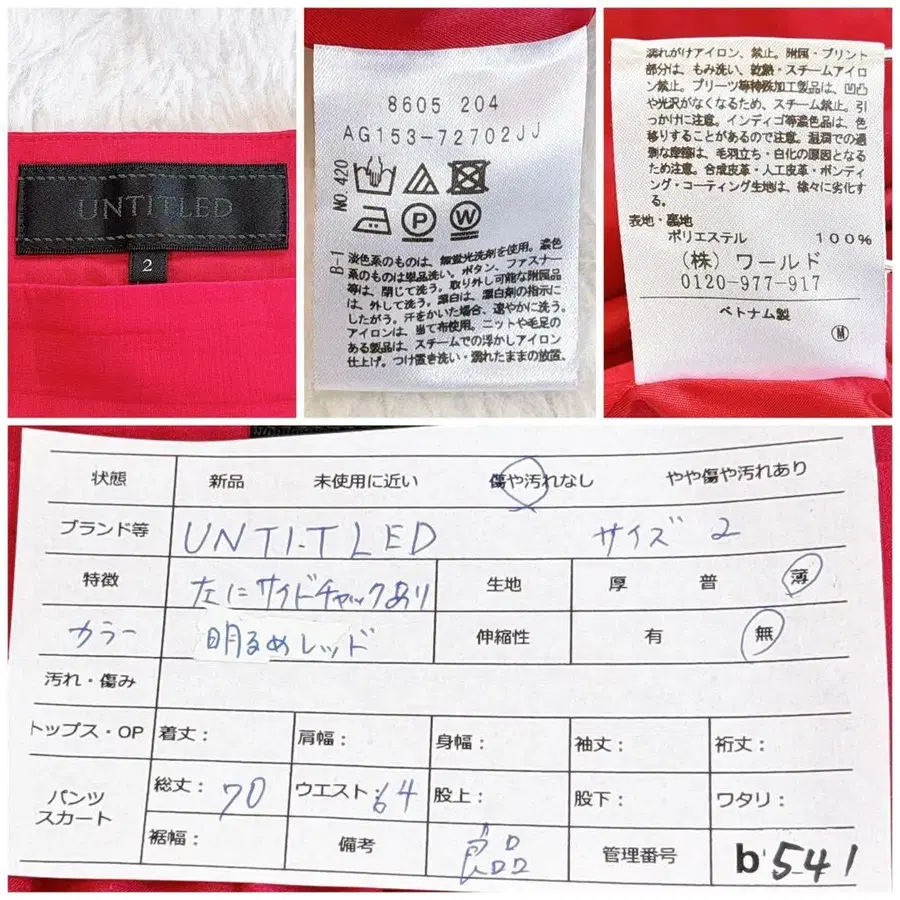 UNTITLED
2
8605 204
AG153-72702JJ
NO.420
P
W
B-1
淡色系のものは、無蛍光洗剤を使用。濃色
系のものは単品洗い。ボタン、ファスナー
等は、閉じて洗う。取り外し可能な附属品
は、外して洗う。漂白は、漂白剤の指示に
したがう。汗をかいた場合、速やかに洗う。
アイロンは、当て布使用。ニットや毛足の
ある製品は、スチームでの浮かしアイロン
仕上げ。つけ置き洗い・濡れたままの放置、
濡れがけアイロン、禁止。附属・プリント
部分は、もみ洗い、乾熱・スチームアイロ
ン禁止。プリーツ等特殊加工製品は、凹凸
や光沢がなくなるため、スチーム禁止。引
っかけに注意。インディゴ等濃色品は、色
移りすることがあるので注意。湿潤での過
度な摩擦は、毛羽立ち・白化の原因となる
ため注意。合成皮革・人工皮革・ボンディ
ング・コーティング生地は、徐々に劣化す
る。
表地・裏地
ポリエステル 100%
(株) ワールド
0120-977-917
ベトナム製
M
状態 新品 未使用に近い 傷や汚れなし やや傷や汚れあり
ブランド等 UNTITLED サイズ 2
特徴 左にサイドチャックあり 生地 厚 普 薄
カラー 明るめレッド 伸縮性 有 無
汚れ・傷み
トップス・OP 着丈: 肩幅: 身幅: 袖丈: 裄丈:
パンツ
スカート
総丈: 70 ウエスト: 64 股上: 股下: ワタリ:
裾幅: 備考 良品 管理番号 b541